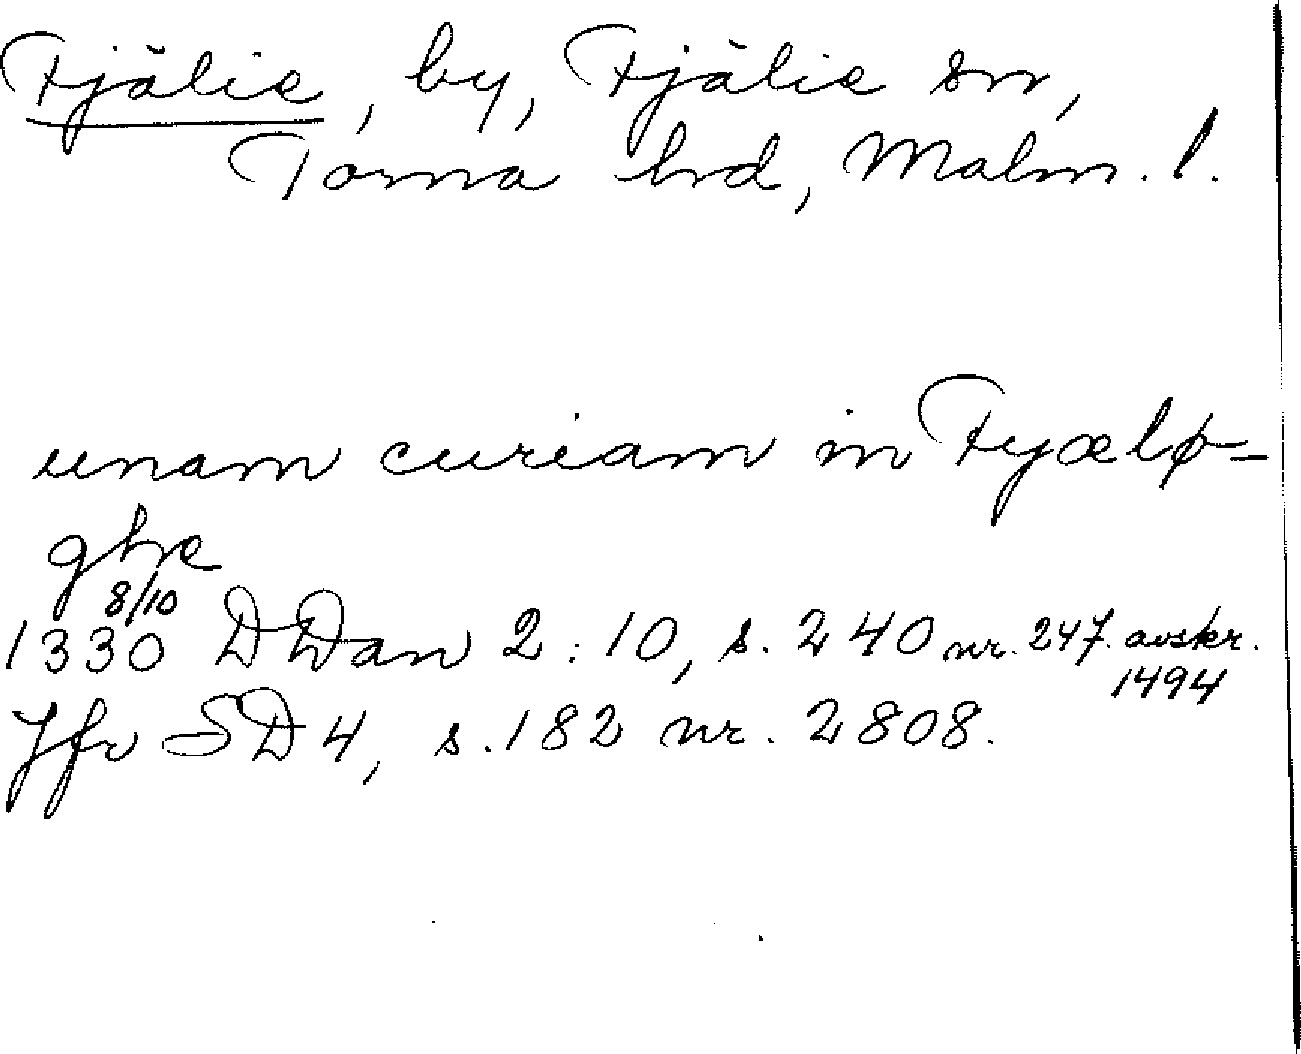 Fjälie, by, Fjälie sn,
Torna hd, Malm. l.
unam curiam in Fyælø-
ghe
8/10
1330 DDan 2:10, s. 240 nr. 247. avskr.
1494
Jfr SD 4, s. 182 nr. 2808.